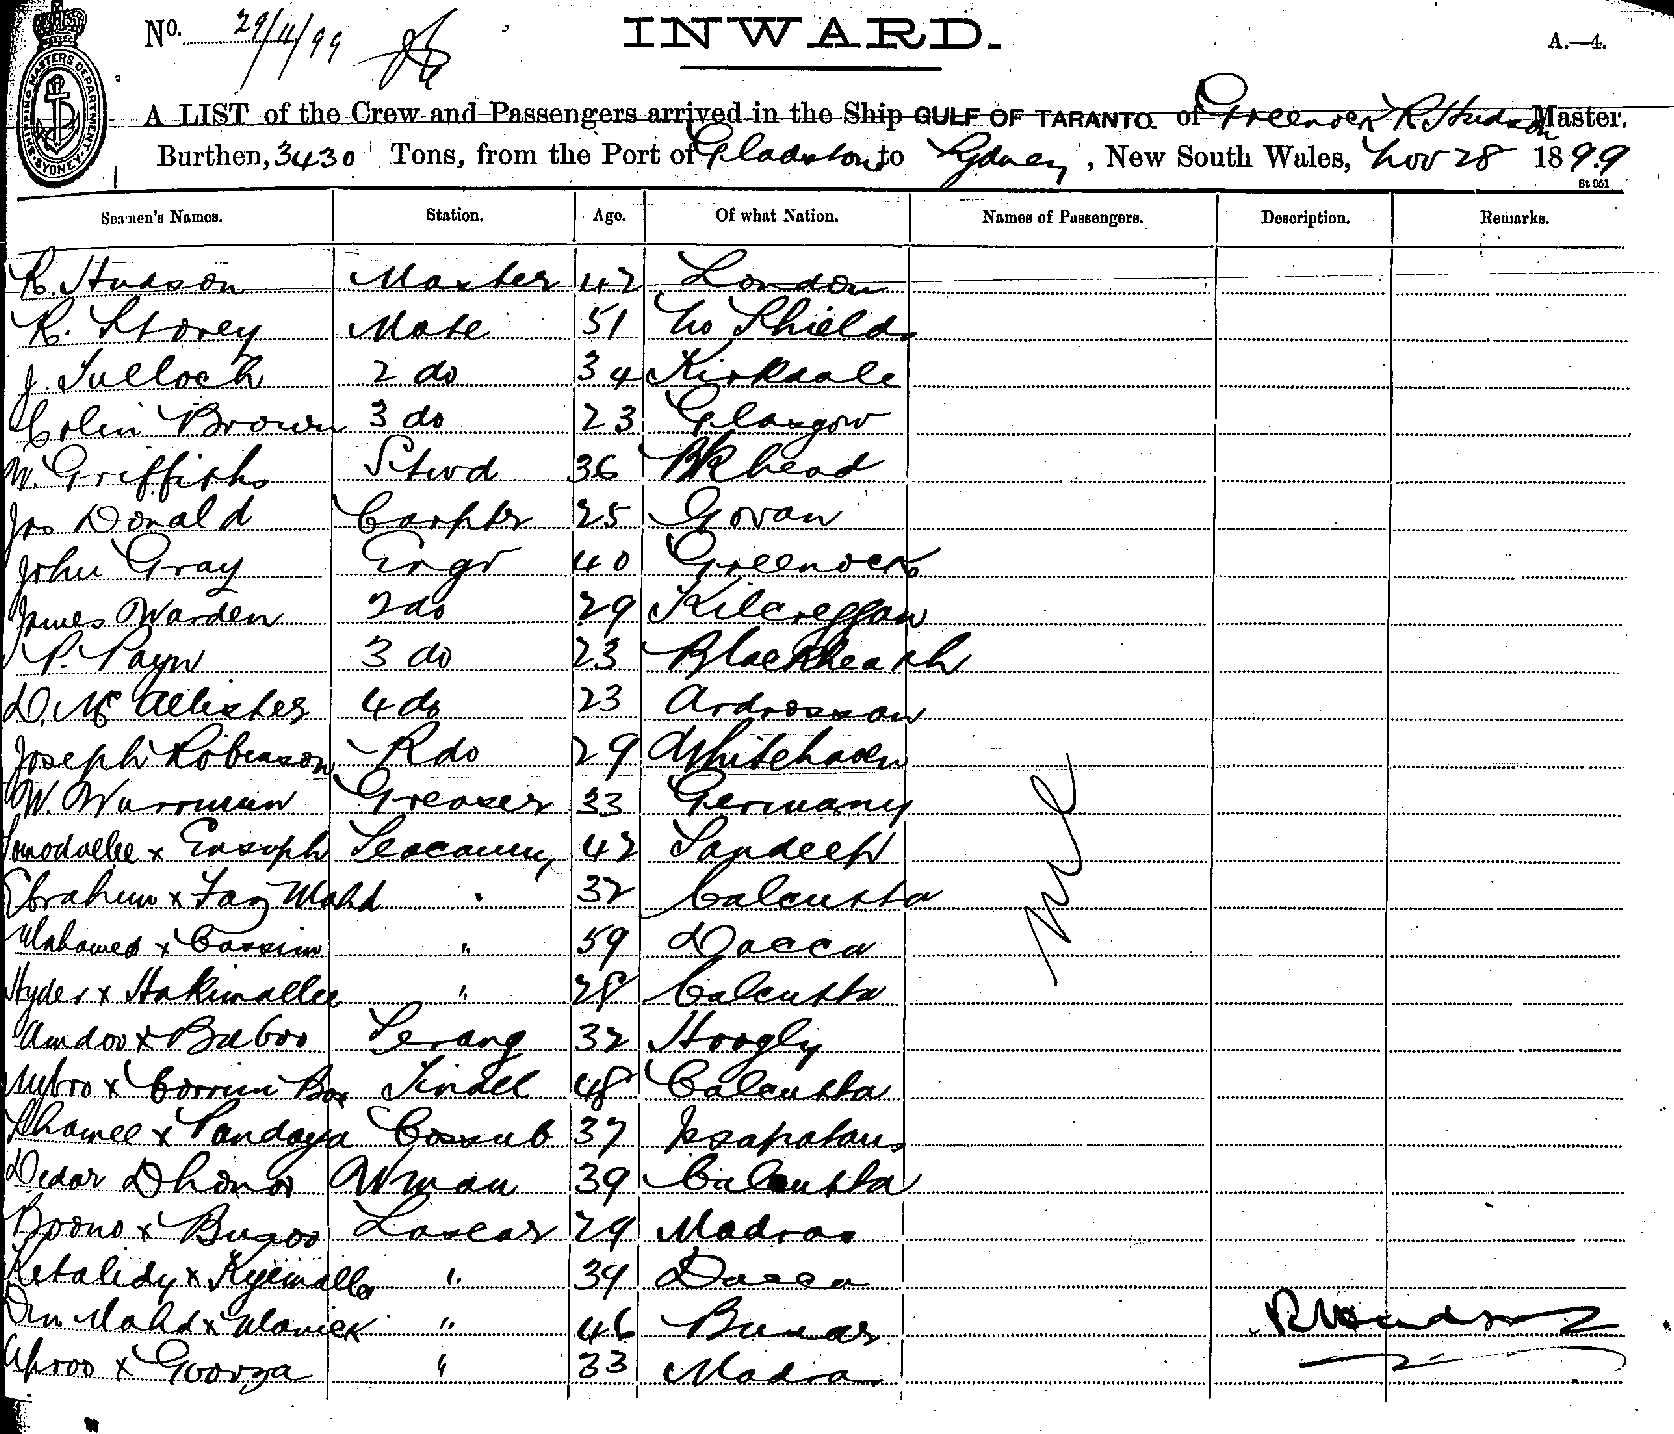 No. 29/11/99
INWARD.
A.—4.
A LIST of the Crew and Passengers arrived in the Ship GULF OF TARANTO of Greenock R. Hudson Master.
Burthen, 3430 Tons, from the Port of Gladston to Sydney, New South Wales, Nov 28 1899
Seamen's Names. Station. Age. Of what Nation. Names of Passengers. Description. Remarks.
R. Hudson Master 42 London
R. Storey Mate 51 No Shields
J. Tulloch 2 do 34 Kirkdale
Colin Brown 3 do 23 Glasgow
W. Griffiths Stwd 36 Bkhead
Jas Donald Carpter 25 Govan
John Gray Engr 40 Greenock
James Warden 2 do 29 Kilcreggan
P. Payn 3 do 23 Blackheath
D. McAllister 4 do 23 Ardrossan
Joseph Robinson R do 29 Whitehaven
W. Wurrman Greaser 33 Germany
x Eusoph Seacunny 42 Sandeep
Ebrahim x Faz Mahd " 32 Calcutta
Mahomed x Cassim " 59 Dacca
Hyder x Hakimallee " 28 Calcutta
Amdoo x Baboo Serang 32 Hoogly
x Corrim Box Tindal 48 Calcutta
x Pandaya Cossub 37
Dedar Dhonoo Wman 39 Calcutta
x Lascar 29 Madras
x " 39 Dacca
x Manick " 46
x Goorza " 33 Madra
Nil
R Hudson